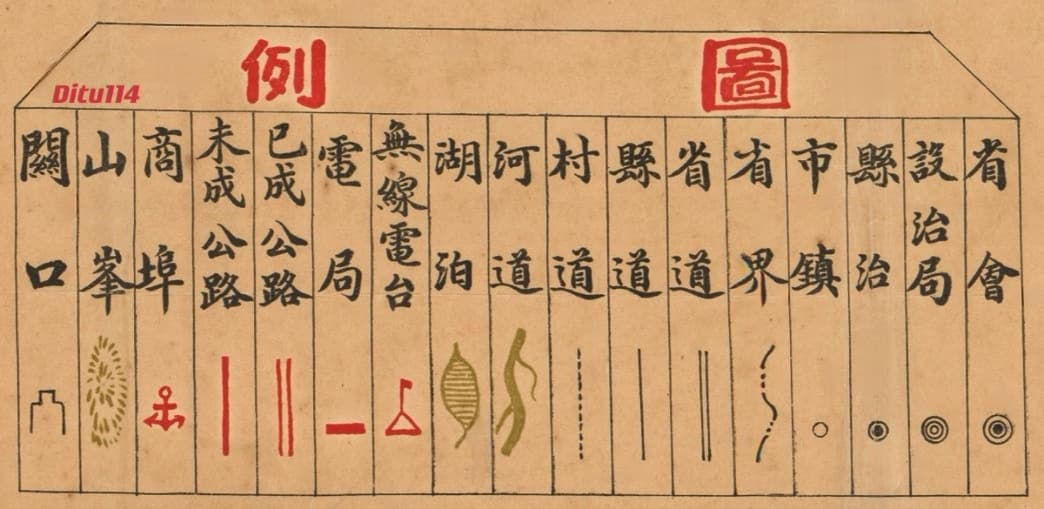 圖例
省會
設治局
縣治
市鎮
省界
省道
縣道
村道
河道
湖泊
無線電台
電局
已成公路
未成公路
商埠
山峯
關口
Ditu114